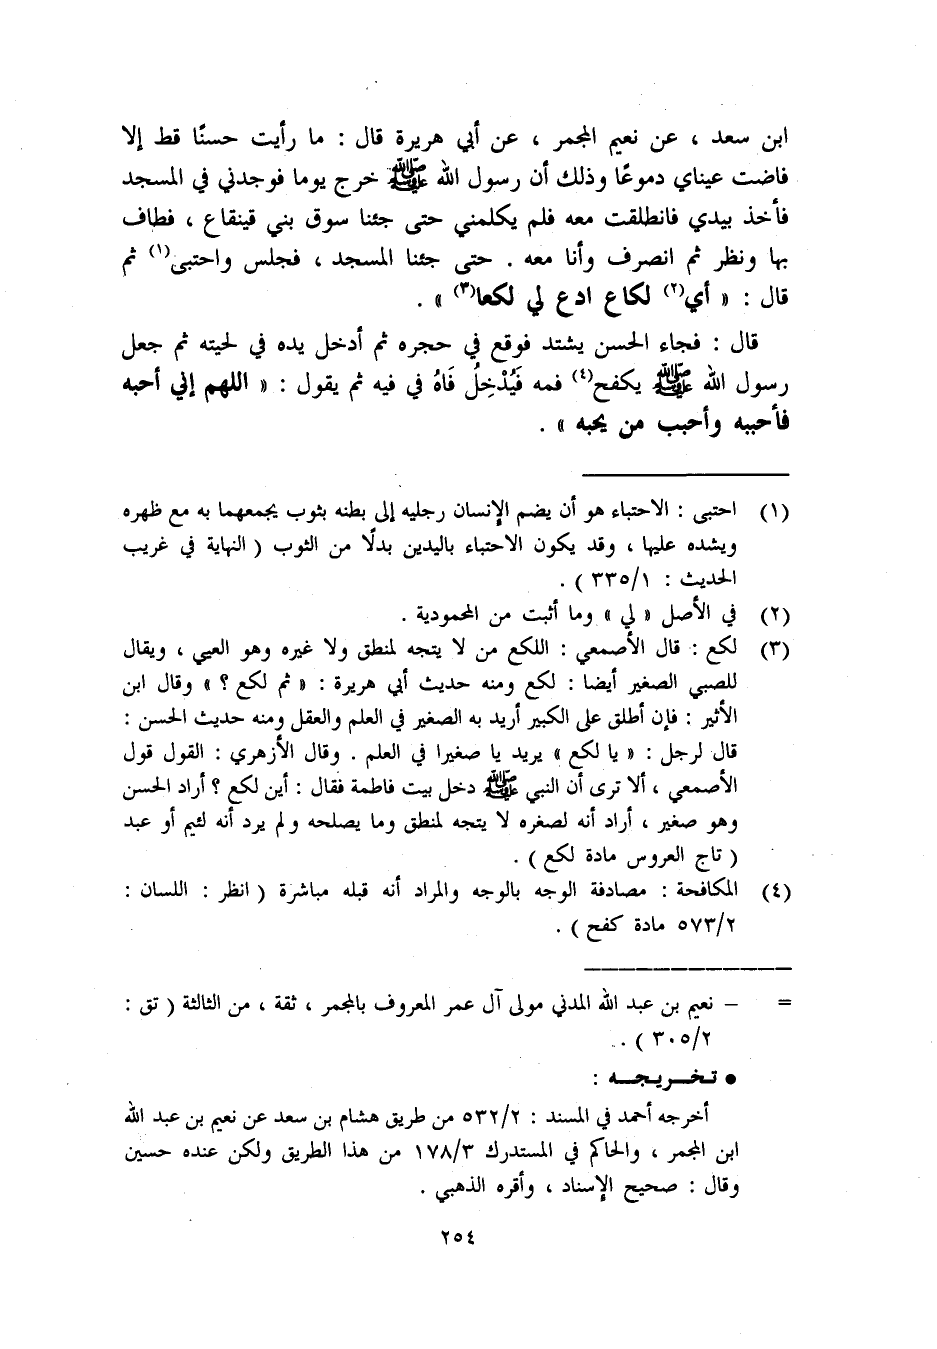 ابن سعد ، عن نعيم المجمر ، عن أبي هريرة قال : ما رأيت حسنًا قط إلا
فاضت عيناي دموعًا وذلك أن رسول الله ﷺ خرج يوما فوجدني في المسجد
فأخذ بيدي فانطلقت معه فلم يكلمني حتى جئنا سوق بني قينقاع ، فطاف
بها ونظر ثم انصرف وأنا معه . حتى جئنا المسجد ، فجلس واحتبى(١) ثم
قال : « أي(٢) لكاع ادع لي لكعا(٣) » .
قال : فجاء الحسن يشتد فوقع في حجره ثم أدخل يده في لحيته ثم جعل
رسول الله ﷺ يكفح(٤) فمه فَيُدْخِلُ فَاهُ في فيه ثم يقول : « اللهم إني أحبه
فأحببه وأحبب من يحبه » .
(١) احتبى : الاحتباء هو أن يضم الإنسان رجليه إلى بطنه بثوب يجمعهما به مع ظهره
ويشده عليها ، وقد يكون الاحتباء باليدين بدلًا من الثوب ( النهاية في غريب
الحديث : ٣٣٥/١ ) .
(٢) في الأصل « لي » وما أثبت من المحمودية .
(٣) لكع : قال الأصمعي : اللكع من لا يتجه لمنطق ولا غيره وهو العيي ، ويقال
للصبي الصغير أيضا : لكع ومنه حديث أبي هريرة : « ثم لكع ؟ » وقال ابن
الأثير : فإن أطلق على الكبير أريد به الصغير في العلم والعقل ومنه حديث الحسن :
قال لرجل : « يا لكع » يريد يا صغيرا في العلم . وقال الأزهري : القول قول
الأصمعي ، ألا ترى أن النبي ﷺ دخل بيت فاطمة فقال : أين لكع ؟ أراد الحسن
وهو صغير ، أراد أنه لصغره لا يتجه لمنطق وما يصلحه ولم يرد أنه لئيم أو عبد
( تاج العروس مادة لكع ) .
(٤) المكافحة : مصادفة الوجه بالوجه والمراد أنه قبله مباشرة ( انظر : اللسان :
٥٧٣/٢ مادة كفح ) .
= – نعيم بن عبد الله المدني مولى آل عمر المعروف بالمجمر ، ثقة ، من الثالثة ( تق :
٣٠٥/٢ ) .
• تـخـــريـجـــه :
أخرجه أحمد في المسند : ٥٣٢/٢ من طريق هشام بن سعد عن نعيم بن عبد الله
ابن المجمر ، والحاكم في المستدرك ١٧٨/٣ من هذا الطريق ولكن عنده حسين
وقال : صحيح الإسناد ، وأقره الذهبي .
٢٥٤